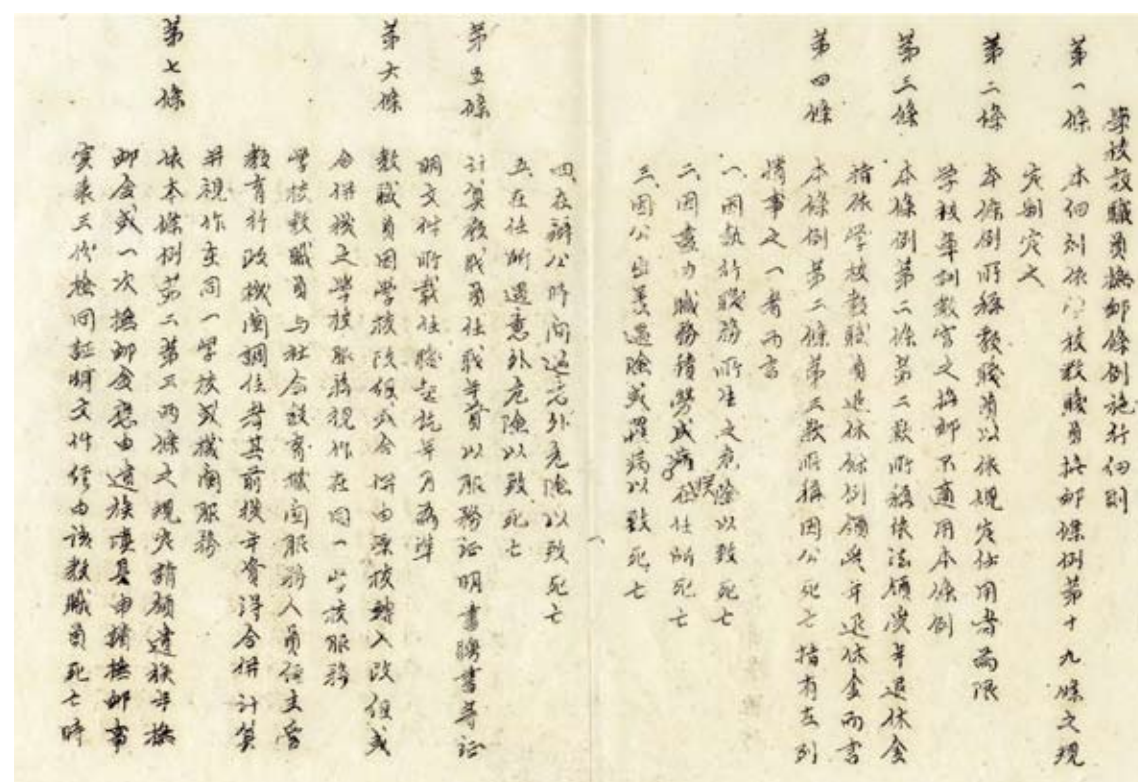 學校教職員撫卹條例施行細則
第一條 本細則依學校教職員撫卹條例第十九條之規
定制定之
第二條 本條例所稱教職員以依規定任用者為限
学校軍訓教官之撫卹不適用本條例
第三條 本條例第二條第二款所稱依法領受年退休金
指依学校教職員退休條例領受年退休金而言
第四條 本條例第二條第三款所稱因公死亡指有左列
情事之一者而言
一、因執行職務所生之危險以致死亡
二、因盡力職務積勞成病在任所死亡
三、因公出差遇險或罹病以致死亡
四、在辦公時間遇意外危險以致死亡
五、在任所遇意外危險以致死亡
第五條 計算教職員任職年資以服務证明書聘書等证
明文件所載任職起訖年月為準
第六條 教職員因學校改組或合併由原校轉入改组或
合併後之學校服務視作在同一学校服務
学校教職員与社会教育機関服務人員经主管
教育行政機関調任者其前後年資得合併計算
并視作在同一学校或機関服務
第七條 依本條例第二第三兩條之規定請領遺族年撫
卹金或一次撫卹金應由遺族填具申請撫卹事
实表三份檢同証明文件经由該教職員死亡時